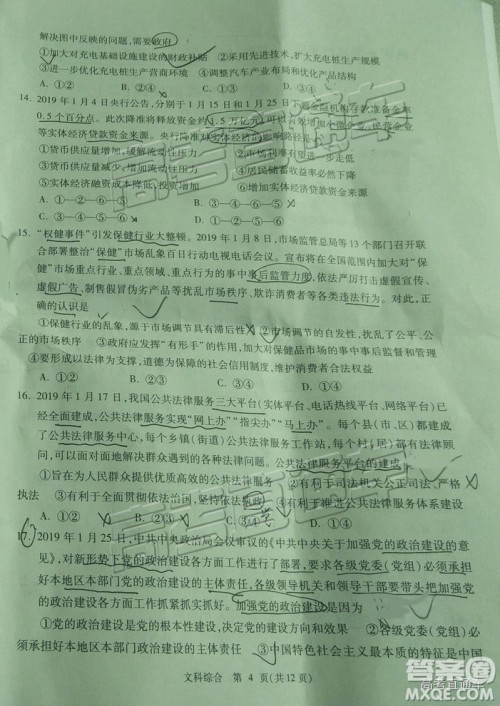 解决图中反映的问题,需要政府
①加大对充电基础设施建设的财政补贴 ②采用先进技术,扩大充电桩生产规模
③进一步优化充电桩生产营商环境 ④调整汽车产业布局和优化产品结构
A. ①② B. ①③ C. ②④ D. ③④
14. 2019 年 1 月 4 日央行公告,分别于 1 月 15 日和 1 月 25 日下调金融机构存款准备金率
0.5 个百分点。此次降准将释放资金约 1.5 万亿元
等实体经济贷款资金来源。央行降准对实体经济的影响路径是
①货币供应量减少,缓解流动性压力 ②市场利率有望进一步走低
③货币供应量增加,缓解流动性压力 ④居民储蓄有收益率降低
⑤实体经济融资成本降低,投资增加 ⑥增加实体经济贷款资金来源
A. ①—②—⑤ B.
15. “权健事件”引发保健行业大整顿。2019 年 1 月 8 日,市场监管总局等 13 个部门召开
联合部署整治“保健”市场乱象百日行动电视电话会议。宣布将在百日行动中,加大对“保
健”市场重点行业、重点领域、重点行为的事中事后监管力度,依法严厉打击虚假宣传、
虚假广告、制售假冒伪劣产品等扰乱市场秩序、欺诈消费者等各类违法行为。对此,正
确的认识是
①保健行业的乱象,源于市场调节具有滞后性 ②市场调节的自发性,扰乱了公平、公
正的市场秩序 ③政府应发挥“有形的手”的作用,加大对保健品市场的事中事后监督和管理
④需要形成以法律为支撑,道德为基础的社会信用制度,维护消费者合法权益
A. ①② B. ①④ C. ②③ D. ③④
16. 2019 年 1 月 17 日,我国公共法律服务三大平台(实体平台、电话热线平台、网络平台)已
经全面建成,公共法律服务实现“网上办”“指尖办”“马上办”。每个县(市、区)都建成了
公共法律服务中心,每个乡镇(街道)公共法律服务工作站,每个村(居)都有法律顾问,
可以面对面地解决群众遇到的各种法律问题。公共法律服务平台的建成
①旨在为人民群众提供优质高效的公共法律服务 ②有利于司法机关公正司法、严格
执法 ③有利于全面贯彻依法治国,坚持依法执政 ④有利于推进公共法律服务体系建设
A. ①② B. ①④ C. ②③ D. ③④
17. 2019 年 1 月 25 日,中共中央政治局会议审议的《中共中央关于加强党的政治建设的意
见》,对新形势下党的政治建设各方面工作进行了部署,要求各级党委(党组)必须承担
好本地区本部门党的政治建设的主体责任,各级领导机关和领导干部要带头把加强
党的政治建设各方面工作抓紧抓实抓好。加强党的政治建设的原因是
①政治建设是党的根本性建设,决定党的建设方向和效果 ②各级党委(党组)必
须承担好本地区本部门政治建设的主体责任 ③中国特色社会主义最本质的特征是中国
文科综合 第 4 页(共12页)